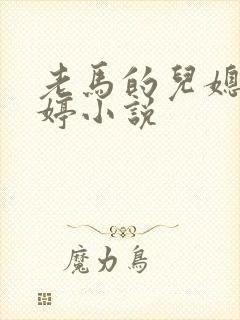 老馬的兒媳
婷小說
魔力鳥